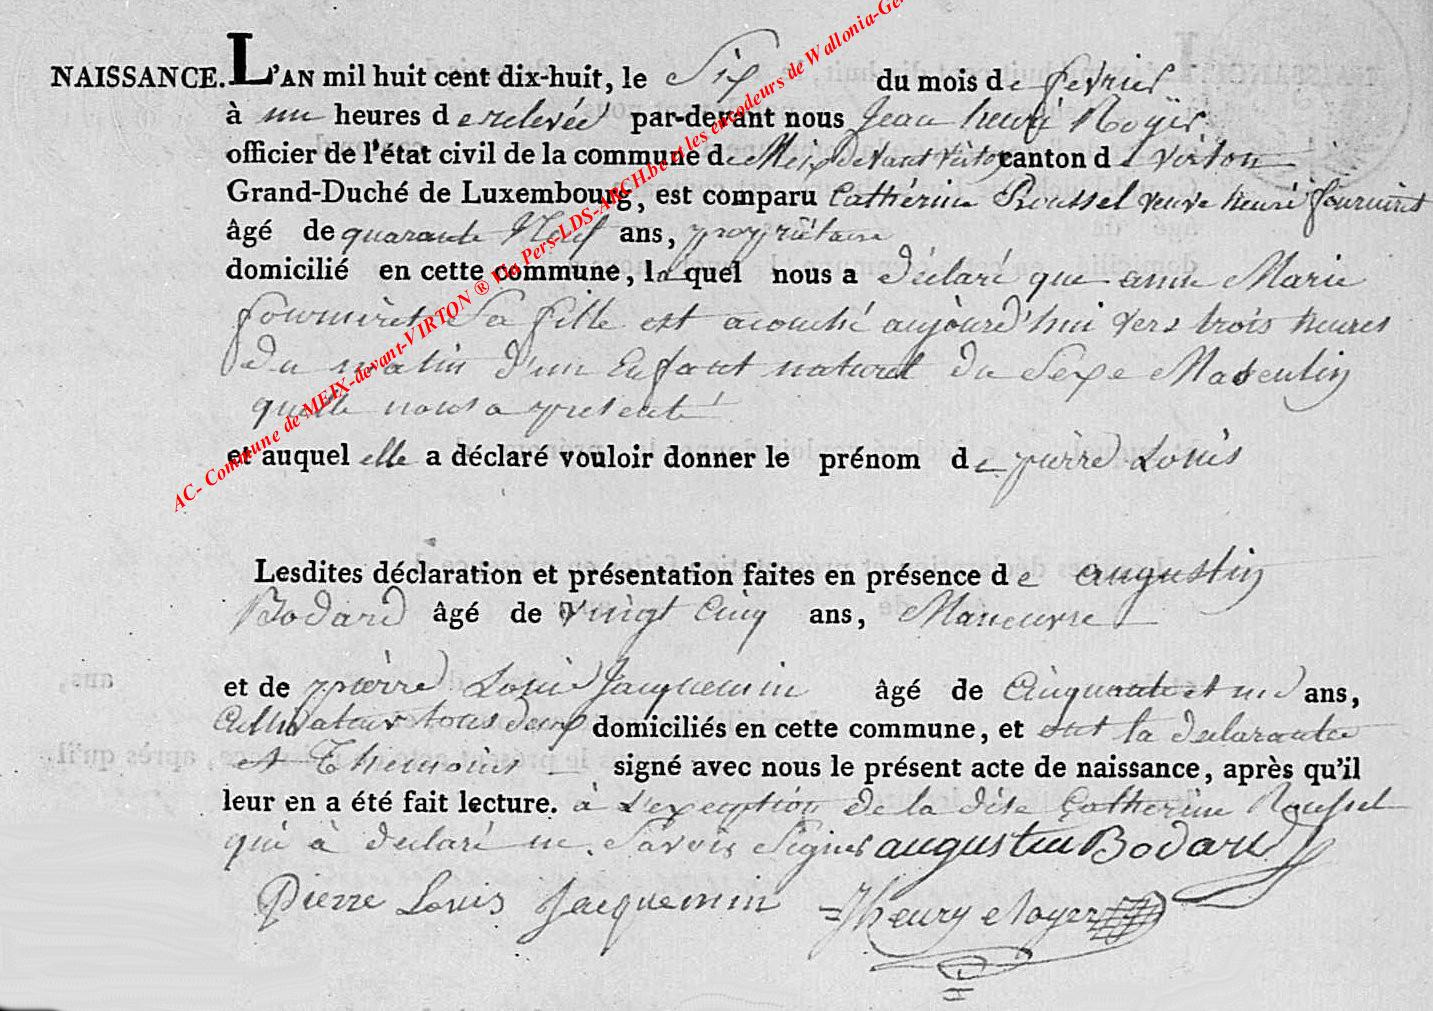 NAISSANCE. L'AN mil huit cent dix-huit, le Six du mois de fevrier
à une heures de relevée par-devant nous Jean henri Noÿer
officier de l'état civil de la commune de Meix devant virton canton de virton
Grand-Duché de Luxembourg, est comparu Cathérine Roussel veuve henri fournirèt
âgé de quarante Neuf ans, propriètaire
domicilié en cette commune, la quel nous a déclaré que anne Marie
fournirèt Sa fille est acouché aujourd'hui vers trois heures
du matin d'un Enfant naturel du Sexe Masculin
quelle nous a presenté
et auquel elle a déclaré vouloir donner le prénom de pièrre Louis
Lesdites déclaration et présentation faites en présence de augustin
Bodard âgé de vingt Cinq ans, Maneuvre
et de pièrre Louis Jacquemin âgé de Cinquante et un ans,
Cultivateur tous deux domiciliés en cette commune, et ont la declarante
et Themoins signé avec nous le présent acte de naissance, après qu'il
leur en a été fait lecture. à L'exception de la dite Catherine Roussel
qui à declaré ne Savoir Signer augustin Bodard
Pierre Louis Jacquemin Jhenry Noyer
AC- Commune de MEIX-devant-VIRTON ® Via Pers-LDS-ARCH.be et les encodeurs de Wallonia-Ge